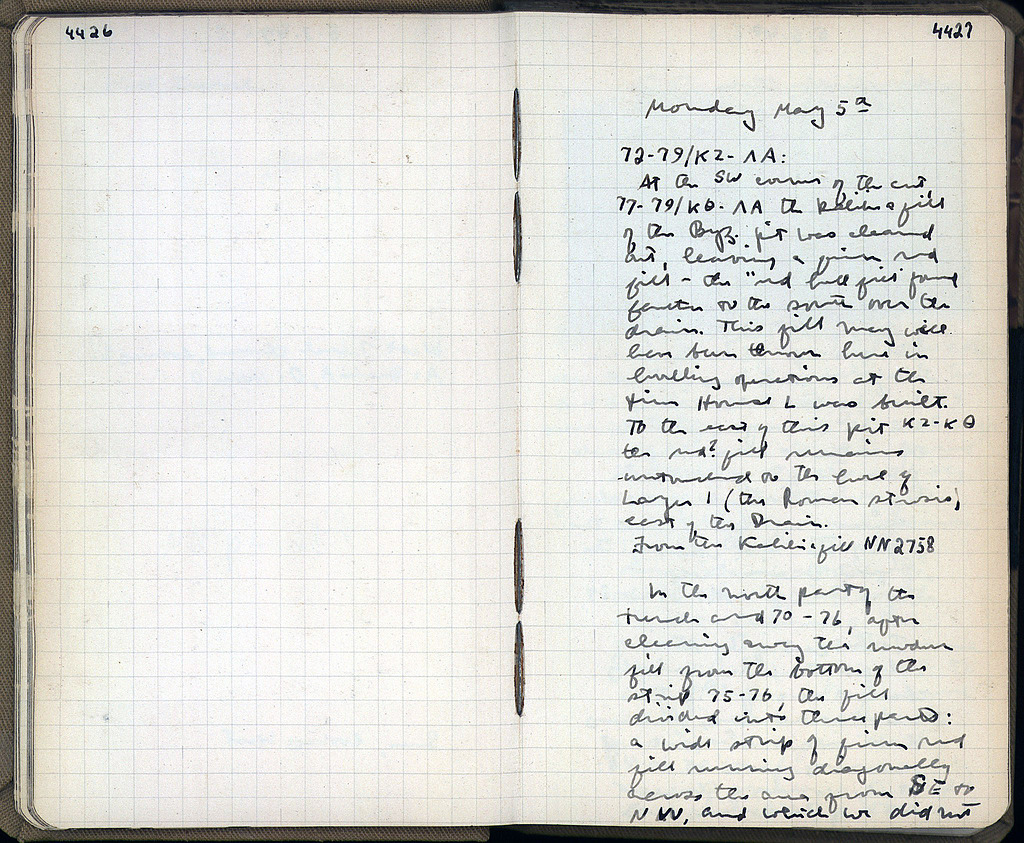 4426
4427
Monday May 5ª
72-79/ΚΖ-ΛΑ:
At the SW corner of the cut,
77-79/ΚΘ-ΛΑ the fill
of the Byz. pit was cleaned
out, leaving a firm red
fill - the "red fill" found
further to the south over the
drain. This fill may well
have been thrown here in
levelling operations at the
time House L was built.
To the east of this pit ΚΖ-ΚΘ
the red? fill remains
untouched to the level of
Layer 1 (the Roman stosis)
east of the Drain.
From the fill NN2758
In the north part of the
trench and 70-76, after
cleaning away the modern
fill from the bottom of the
strip 75-76, the fill
divided into three parts:
a wide strip of firm red
fill running diagonally
across the area from SE to
NW, and which we did not